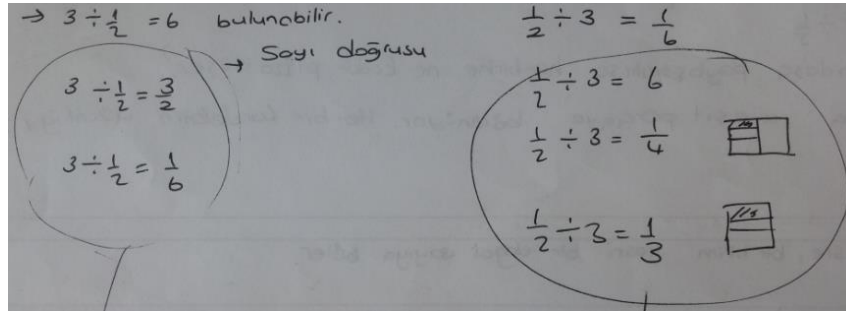 → 3 ÷ 1/2 = 6 bulunabilir.
→ Sayı doğrusu
3 ÷ 1/2 = 3/2
3 ÷ 1/2 = 1/6
1/2 ÷ 3 = 1/6
1/2 ÷ 3 = 6
1/2 ÷ 3 = 1/4
1/2 ÷ 3 = 1/3